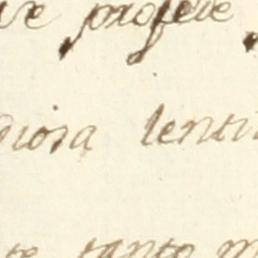 profere
diosa lenti
te tanto m